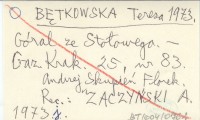 BĘTKOWSKA Teresa 1973.
Góral ze Stołowego. -
Gaz. Krak. 25, nr 83.
Andrzej Skupień Florek.
Rec.: ZACZYŃSKI A.
1973 r.